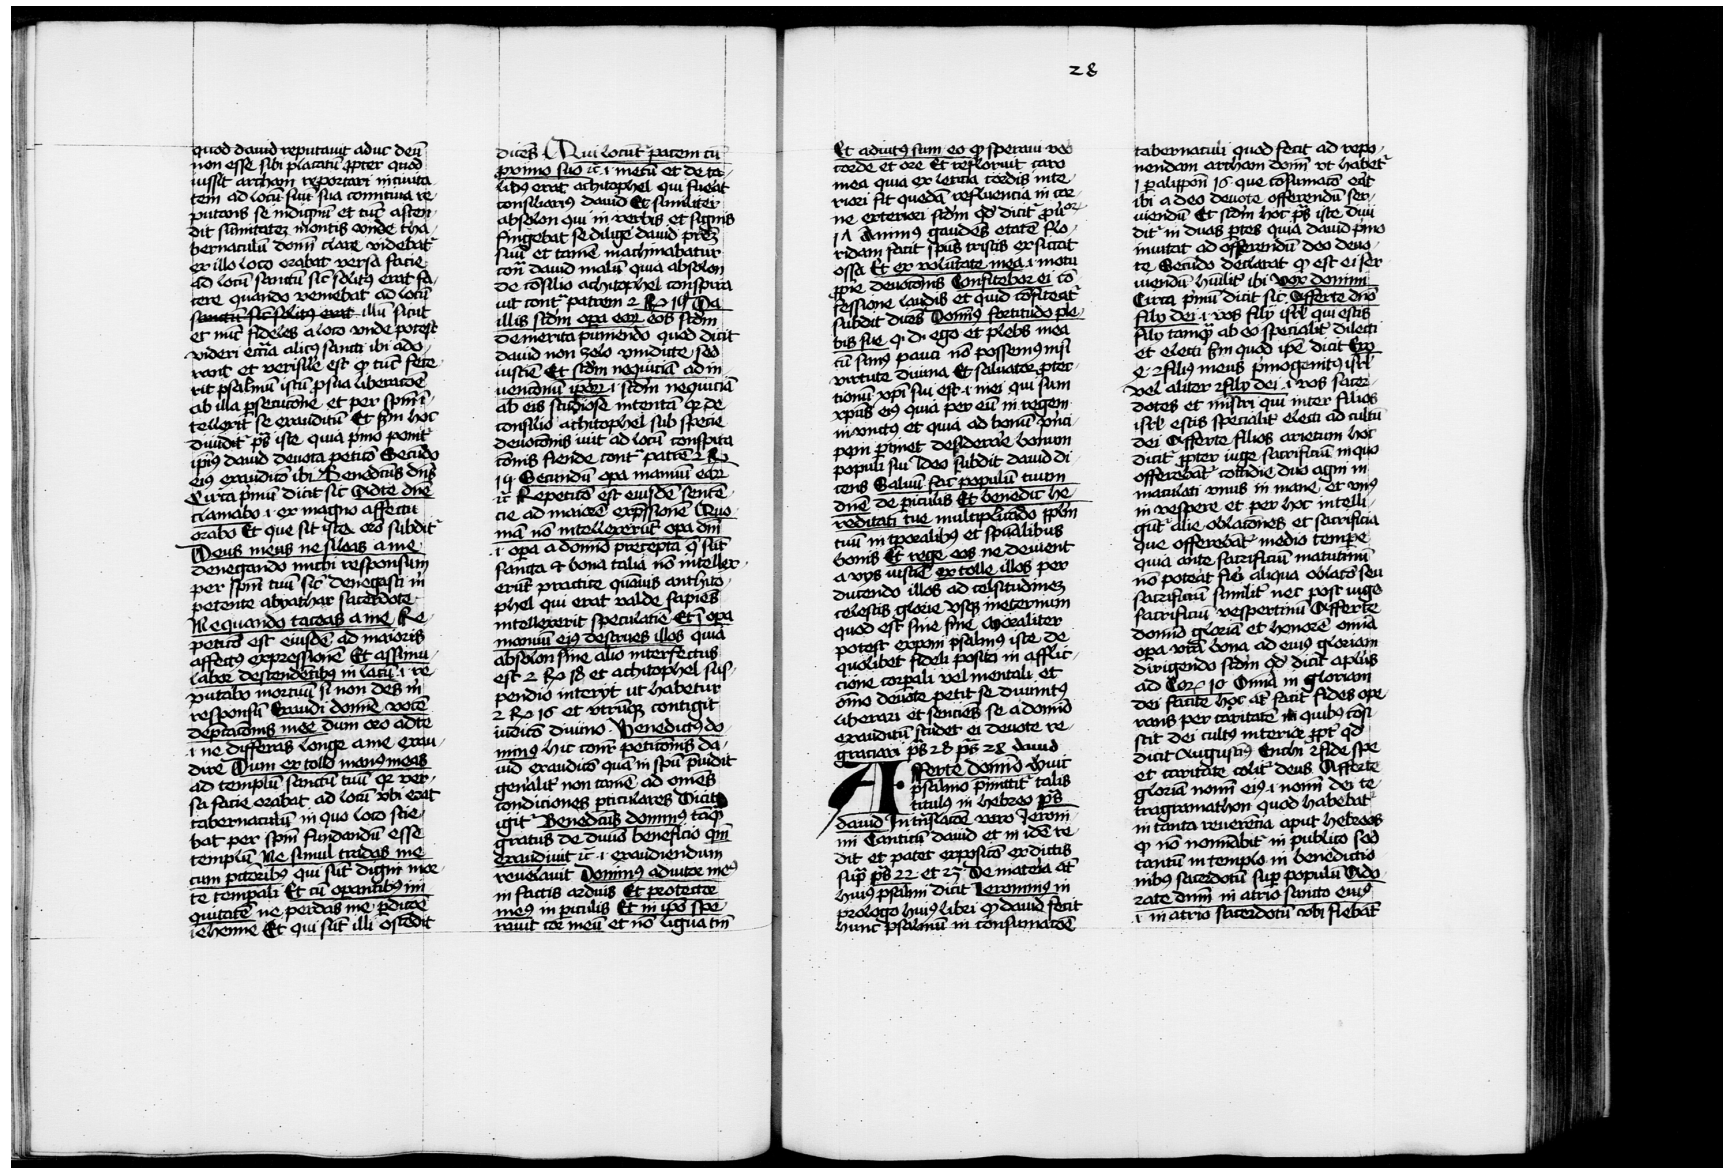 quod david reputauit aduc deū
non esse sibi placatū ꝓpter quod
iussit archam reportari in ciuita-
tem ad locū suū sua comitiua re-
putans se indignū et tūc ascen-
dit sūmitatez montis vnde tha-
bernaculū domī clare videbat᷑
ex illo loco orabat versa facie
ad locū sanctū sic solitus erat fa-
cere quando veniebat ad locū
sanctū sic solitus erat illū sicut
et nūc fideles a loco vnde potest
videri ecc̄ia alicuius sancti ibi ado-
rant et verisil̄e est ꝙ tūc fece-
rit psalmū istū ꝓ sua liberacōe
ab illa ꝑsecucōne et per spm̄ ī-
tellexit se exauditū Et scd̄m hoc
diuidit᷑ ps̄ iste quia pͥmo ponit᷑
ipius david deuota peticō Secūdo
eius exaudicō ibi Benedictus dn̄s
Circa pͥmū dicit sic Ad te dn̄e
clamabo .i. ex magno affectu
orabo Et que sit ista orō subdit᷑
Deus meus ne sileas a me
denegando michi responsum
per spm̄ tuū sic denegasti m̄
petente abyathar sacerdote
Ne quando taceas a me Re-
peticō est eiusdē ad maioris
affectus expressionē Et assimi-
labor descendētibus in lacū .i. re-
putabo mortuū si non des m̄
responsū Exaudi domine vocē
dep̄cacōnis mee dum oro ad te
.i. ne differas longe a me exau-
dire Dum extollo manus meas
ad templū sanctū tuū qꝛ ver-
sa facie orabat ad locū vbi erat
tabernaculū in quo loco scie-
bat per spm̄ fundandū esse
templū Ne simul tradas me
cum pctōribus qui sūt digni mor-
te temporali Et cū oꝑantibus ini-
quitatē ne perdas me ꝑdicōe
iehenne Et qui sūt illi ostēdit
dicēs Qui locūt᷑ pacem cū
proximo suo ꝛc̄ .i. mecū et de ta-
libus erat achitophel qui fuerat
consiliarius david Et similiter
absolon qui in verbis et signis
fingebat se diligere david prēz
suū et tamē machinabatur
cont᷑ david malū quia absolon
de cōsilio achitophel conspira-
uit cont᷑ patrem 2 Rͦ 19 Da
illis scd̄m opa eoꝝ eos scd̄m
demerita puniendo quod dicit
david non zelo vindicte sed
iusticie Et scd̄m nequiciā adin-
uencionū ipoꝝ .i. scd̄m nequiciā
ab eis studiose intentā qꝛ de
consilio achitophel sub specie
deuocōnis iuit ad locū conspira-
cōnis fiende cont᷑ patrē 2 Rͦ
19 Secundū opa manuū eoꝝ
ꝛc̄ Repeticō est eiusdē sentē-
cie ad maiorē exp̄ssionē Quo-
niā nō intellexerūt opa dn̄i
.i. opa a domino precepta q̄ sūt
sancta & bona talia nō intellex-
erūt practice quāuis anchito-
phel qui erat valde sapiēs
intellexerit speculatie Et ī opa
manuū eius destrues illos quia
absolon sine alio interfectus
est 2 Rͦ 18 et achitophel sus-
pendio interijt ut habetur
2 Rͦ 16 et vtrūqꝫ contigit
iudicō diuino Benedictus do-
minus hic tangit᷑ peticōnis da-
uid exaudicō quā in spū p̄uidit
gen̄alit᷑ non tamē ad omēs
condiciones pticulares Dicit
igit᷑ Benedictus dominus tāqꝫ
gratus de diuīo beneficio qm̄
exaudiuit ꝛc̄ .i. exaudiendum
reuelauit Dominus adiutor meus
in factis arduis Et protector
meus in ꝑiculis Et in ipō spe-
rauit cor meū et nō ligua tm̄
28
Et adiutus sum eo ꝙ speraui veo
corde et ore Et refloruit caro
mea quia ex leticia cordis inte-
riori fit quedā refluencia in cor-
ne exteriori scd̄m qd̄ dicit᷑ puͦꝝ
17 Animus gaudēs etatē flo-
ridam facit spūs tristis exsiccat
ossa Et ex volūtate mea .i. motu
ꝓprie deuocōnis Confitebor ei cō-
fessione laudis et quid cōfiteat᷑
subdit dicēs Dominus fortitudo ple-
bis sue q. d. ego et plebs mea
cū simus pauci nō possemus nisi
virtute diuina Et saluator ꝓtec-
tionū xp̄i sui est .i. mei qui sum
xp̄us eius quia per eū in regem
inunctus et quia ad bonū pͥnci-
pem ꝑtinet desiderare bonum
populi sui Ideo subdit david di-
cens Saluū fac populū tuum
dn̄e de ꝑiculis Et benedic he-
reditati tue multiplicādo ppl̄m
tuū in tꝑoralibus et spūalibus
bonis Et rege eos ne deuient
a vijs iusticie extolle illos per
ducendo illos ad celsitudinez
celestis glorie vsqꝫ in eternum
quod est sine fine Moraliter
potest exponi psalmus iste de
quolibet fideli posito in afflic-
cione corꝑali vel mentali et
om̄o deuote petit se diuinitus
liberari et senciēs se a domino
exauditū studet ei deuote re-
graciari ps̄ 28 ps̄ 28 david
Afferte domino Huic
psalmo p̄mittit᷑ talis
titulus in hebreo ps̄
david In trāslacōe vero Jeroni-
mi Canticū david et in idē re-
dit et patet exposicō ex dictis
supͣ ps̄ 22 et 23 De materia at̄
huius psalmi dicit Jeronimus in
prologo huius libri ꝙ david fecit
hunc psalmū in consumacōe
tabernaculi quod fecit ad repo-
nendam archam domī vt habet᷑
1 paralippon̄ 16 que cōsumacō erat
ibi a deo deuote offerendū ser-
uiendū Et scd̄m hoc ps̄ iste diui-
dit᷑ in duas ꝑtes quia david pͥmo
inuitat ad offerendū deo deuo-
te Secūdo declarat ꝙ est ei ser-
uiendū hūilit᷑ ibi vox domini
Circa pͥmū dicit sic Afferte dn̄o
filij dei .i. vos filij isrl̄ qui estis
filij tamqꝫ ab eo specialit᷑ dilecti
et electi scd̄m quod ipē dicit Exo
4 2 filius meus pͥmogenitus isrl̄
vel aliter 2 filij dei .i. vos sacer-
dotes et mīstri qui inter filios
isrl̄ estis specialit᷑ electi ad cultū
dei Afferte filios arietum hoc
dicit᷑ ꝓpter iuge sacrificiū in quo
offerebāt᷑ cottidie duo agni in-
maculati vnus in mane et vnus
in vespere et per hoc intelli-
gūt᷑ alie oblacōnes et sacrificia
que offerebāt᷑ medio tempore
quia ante sacrificiū matutinū
nō poterat fieri aliqua oblacō seu
sacrificiū similit᷑ nec post iuge
sacrificiū vespertinū Afferte
domino gloriā et honorē omīa
opa vr̄a bona ad eius gloriam
dirigendo scd̄m qd̄ dicit apl̄us
ad Coꝝ 10 Omīa in gloriam
dei facite hoc at̄ facit fides ope-
rans per caritatē in quibus cōsi-
stit dei cultus interior ꝓpt᷑ qd̄
dicit Augustinus Enchi 2 fide spe
et caritate colit᷑ deus Afferte
gloriā nomī eius .i. nomī dei te-
tragramathon quod habebat᷑
in tanta reuerēcia aput hebreos
ꝙ nō nomīabat᷑ in publico sed
tantū in templo in benedictio-
nibus sacerdotū suꝑ populū Ado-
rate dn̄m in atrio sancto eius
.i. in atrio sacerdotū vbi fiebāt